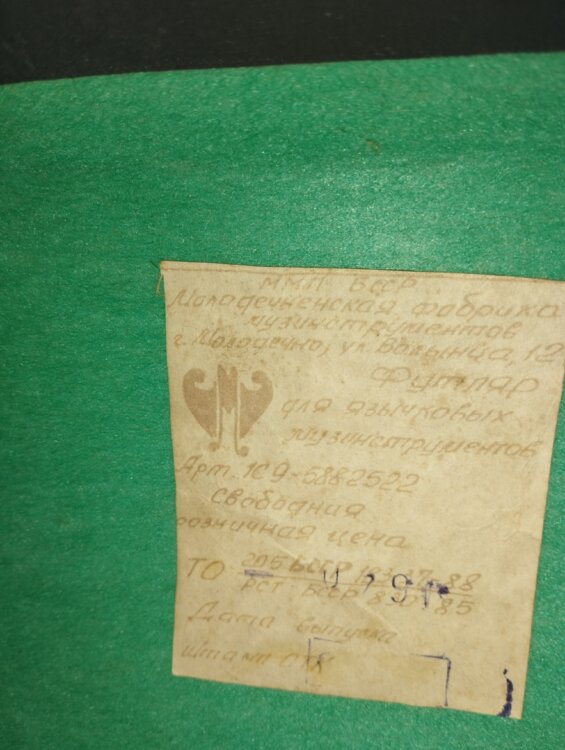 ММП БССР
Молодечненская фабрика
музинструментов
г. Молодечно, ул. Волынца, 12
Футляр
для язычковых
музинструментов
Арт. 1С9-5882522
Свободная
розничная цена
ТО
РСТ БССР
Дата выпуска
Штамп ОТК